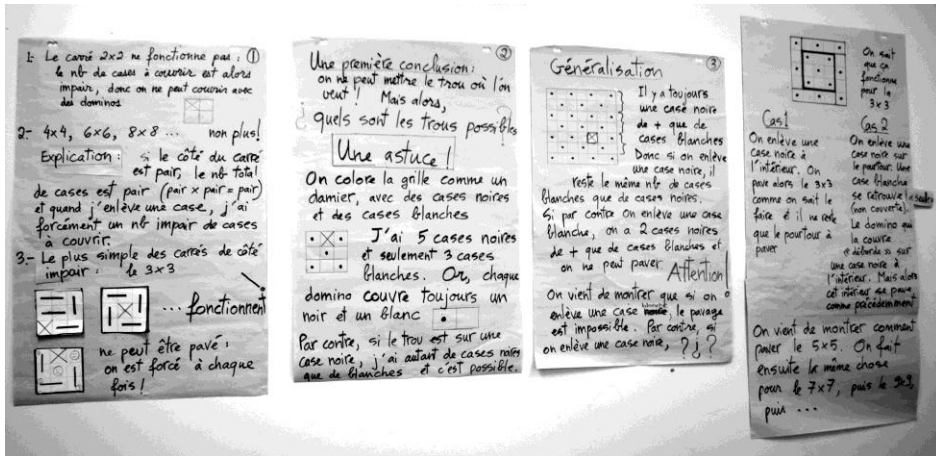 ①
1- Le carré 2x2 ne fonctionne pas :
le nb de cases à couvrir est alors
impair, donc on ne peut couvrir avec
des dominos
2.- 4x4, 6x6, 8x8 ... non plus!
Explication : si le côté du carré
est pair, le nb total
de cases est pair (pair x pair = pair)
et quand j'enlève une case, j'ai
forcément un nb impair de cases
à couvrir.
3.- Le plus simple des carrés de côté
impair : le 3x3
... fonctionnent
ne peut être pavé :
on est forcé à chaque
fois !
②
Une première conclusion :
on ne peut mettre le trou où l'on
veut ! Mais alors,
quels sont les trous possibles
?
Une astuce !
On colore la grille comme un
damier, avec des cases noires
et des cases blanches
J'ai 5 cases noires
et seulement 3 cases
blanches. Or, chaque
domino couvre toujours un
noir et un blanc
Par contre, si le trou est sur une
case noire, j'ai autant de cases noires
que de blanches et c'est possible.
③
Généralisation
Il y a toujours
une case noire
de + que de
cases blanches
Donc si on enlève
une case noire, il
reste le même nbr de cases
blanches que de cases noires.
Si par contre on enlève une case
blanche, on a 2 cases noires
de + que de cases blanches et
on ne peut paver
Attention!
On vient de montrer que si on
enlève une case blanche, le pavage
est impossible. Par contre, si
on enlève une case noire, ?¿?
On sait
que ça
fonctionne
pour le
3x3
Cas 1
On enlève une
case noire à
l'intérieur. On
pave alors le 3x3
comme on sait le
faire et il ne reste
que le pourtour à
paver
Cas 2
On enlève une
case noire sur
le pourtour. Une
case blanche
se retrouve seule
(non couverte).
Le domino qui
la couvre
"déborde" sur
une case noire à
l'intérieur. Mais alors
cet intérieur se pave
comme précédemment
On vient de montrer comment
paver le 5x5. On fait
ensuite la même chose
pour le 7x7, puis le 9x9,
puis ...